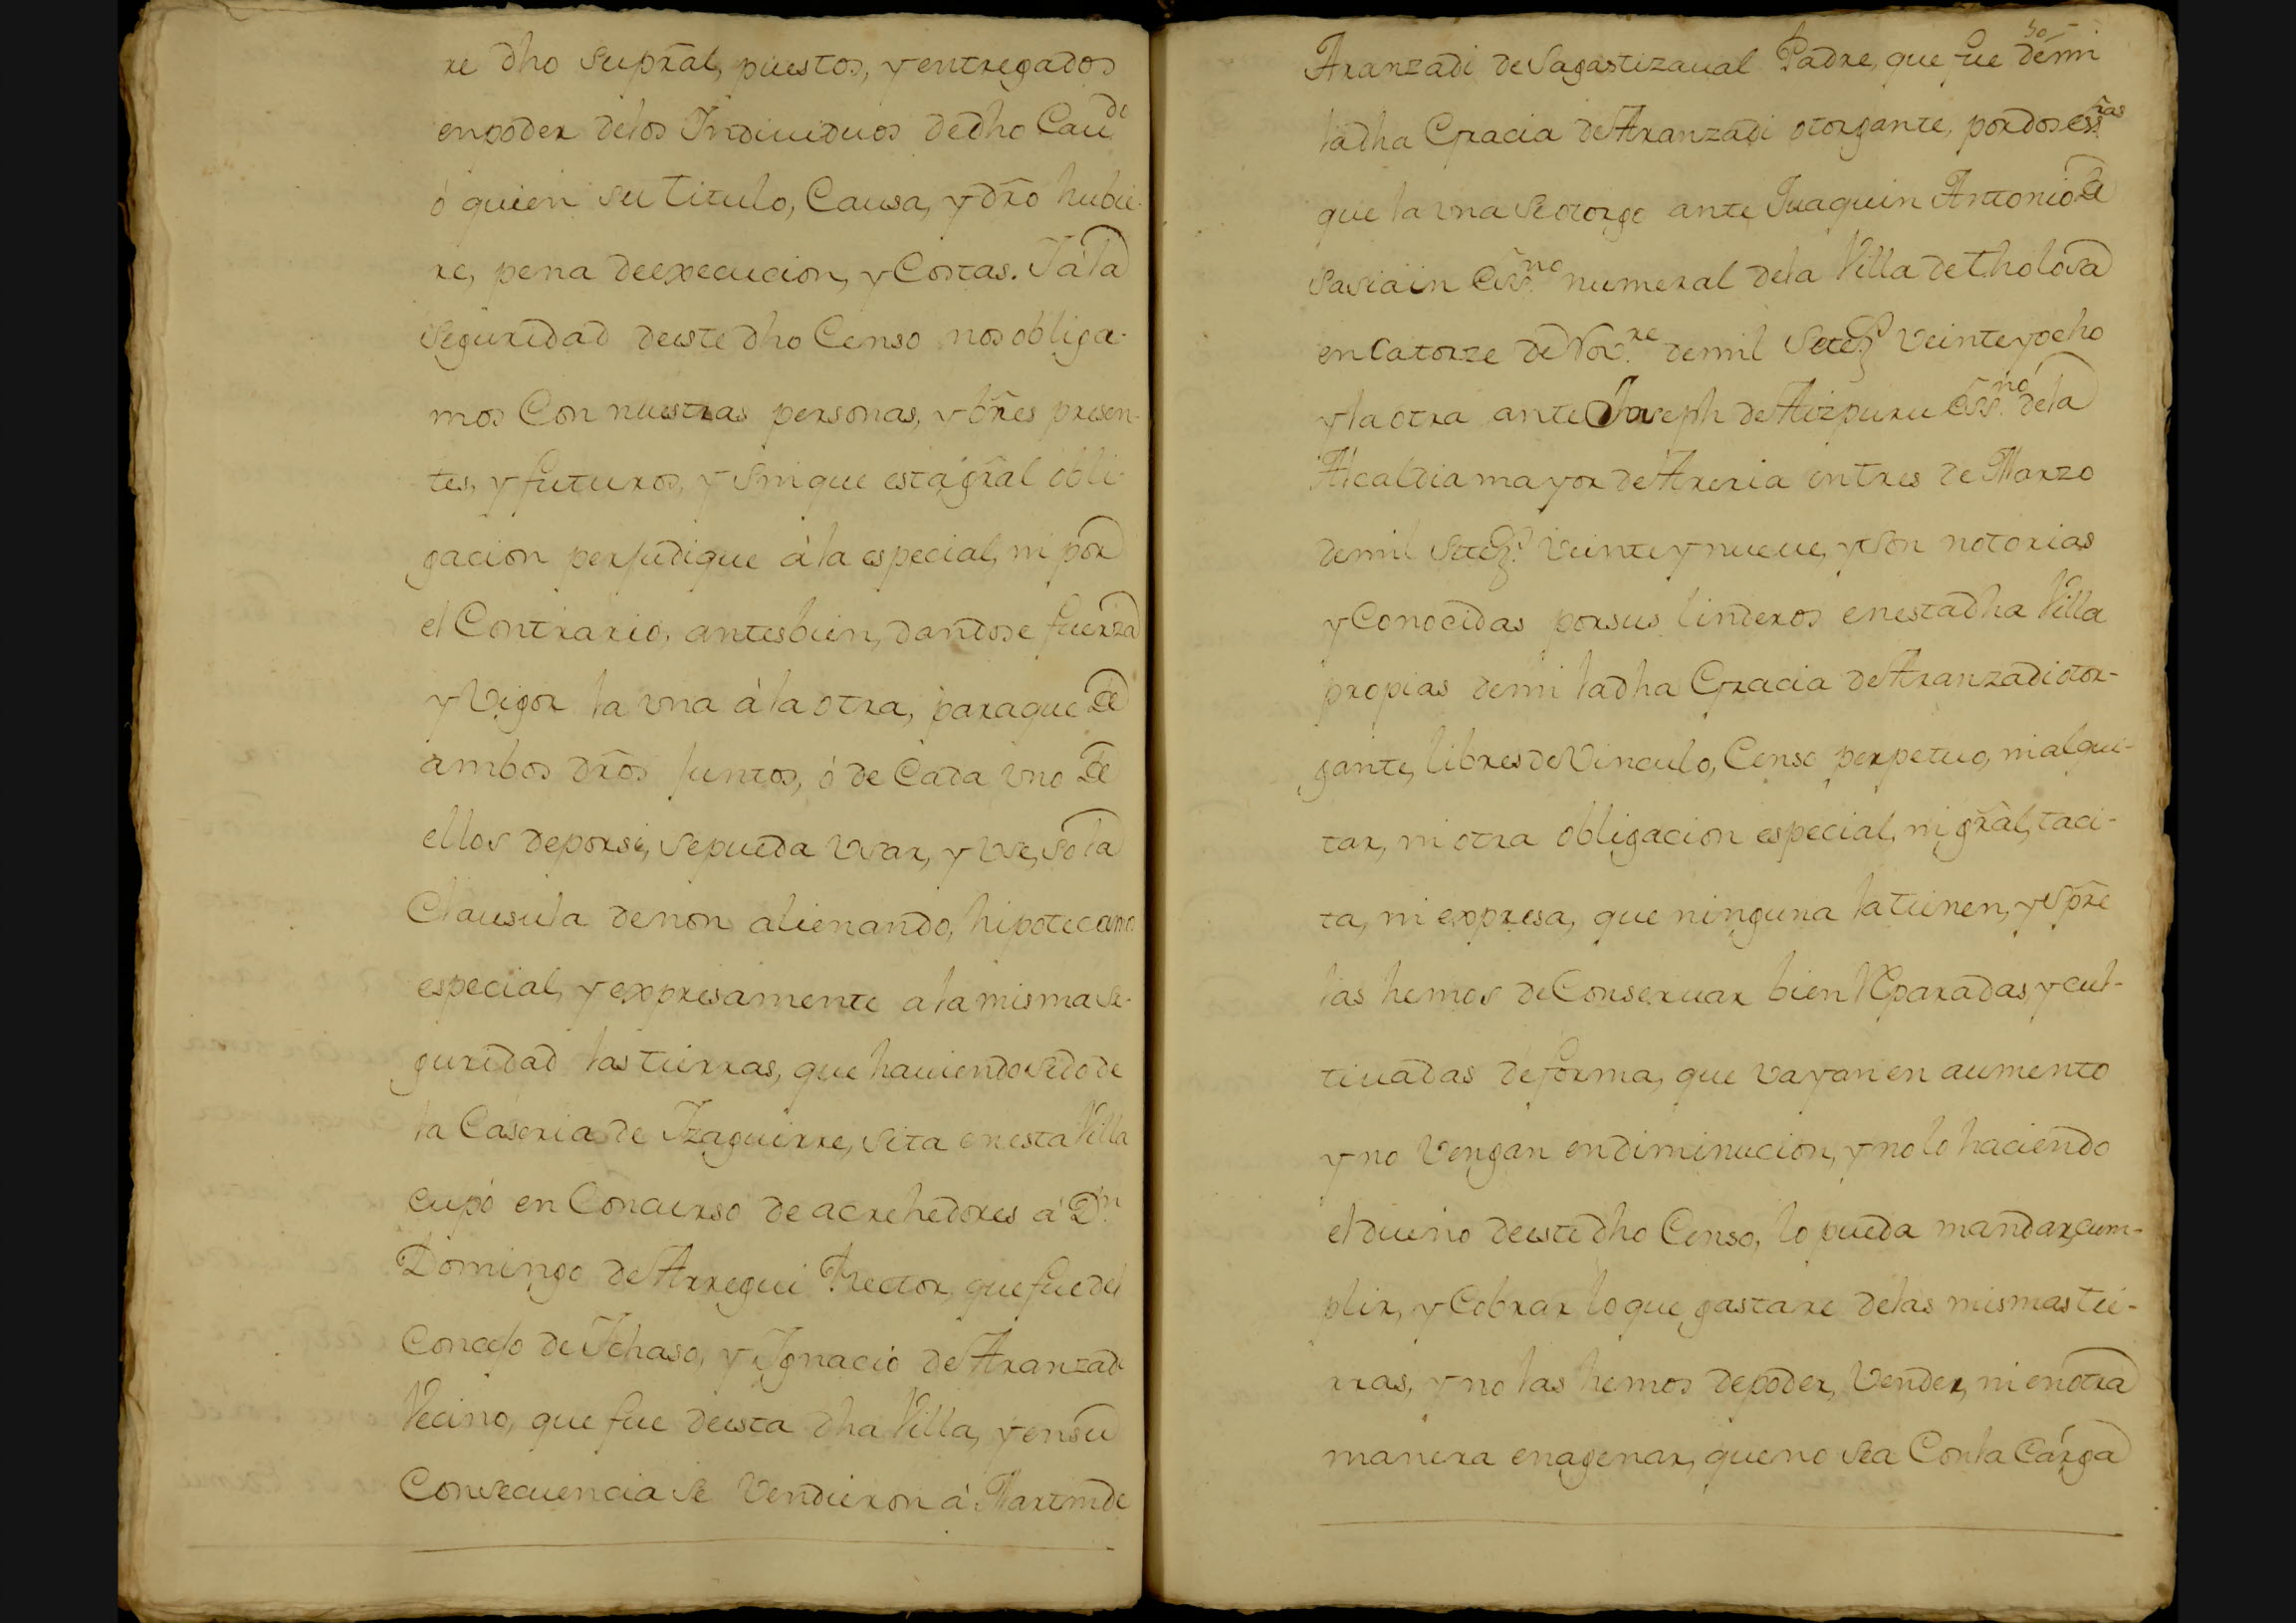 re dho supral, puestos, y entregados
enpoder delos Indiuiduos dedho Cau.do
ó quien su titulo, Causa, y dro hubie-
re, pena deexecucion, y Costas. Y à la
Seguridad deeste dho Censo nos obliga-
mos Con nuestras personas, y bres presen-
tes, y futuros, y sin que esta gral obli-
gacion perjudique à la especial, ni por
el Contrario, antesbien, dandose fuerza
y Vigor la vna à la otra, paraque de
ambos dros juntos, ó de Cada vno de
ellos deporsi, sepueda vsar, y vse, so la
Clausula denon alienando, hipotecamos
especial, y expresamente a la misma se-
guridad las tierras, que hauiendo sido de
la Caseria de Yzaguirre, sita enesta Villa
cupó en Concurso de acrehedores á Dn.
Domingo de Arregui Rector, que fue del
Concejo de Ichaso, y Ignacio de Aranzadi
Vecino, que fue deesta dha Villa, y ensu
Consecuencia se Vendieron á Martin de
30
Aranzadi de Sagastizaual Padre, que fue demi
ladha Gracia de Aranzadi otorgante, pordos essras
que la vna se otorgo ante Juaquin Antonio de
Sasiain Essno. numeral dela Villa de tholosa
en Catorze de Novre. demil Setez.s Veinteyocho
y la otra ante Joseph de Aizpuru Essno. dela
Alcaldia mayor de Areria entres de Marzo
demil Setez.s Veinteynueue, y son notorias
y Conocidas porsus linderos enestadha Villa
propias demi ladha Gracia de Aranzadi otor-
gante, libres de Vinculo, Censo perpetuo, nialqui-
tar, ni otra obligacion especial, ni gral, taci-
ta, ni expresa, que ninguna la tienen, y spre
las hemos de Conseruar bien Reparadas, y cul-
tiuadas de forma, que vayan en aumento
y no Vengan endiminucion, y no lo haciendo
el dueño deeste dho Censo, lo pueda mandar, cum-
plir, y Cobrar lo que gastare delas mismas tie-
rras, y no las hemos depoder, Vender, ni enotra
manera enagenar, queno sea Conla Cárga